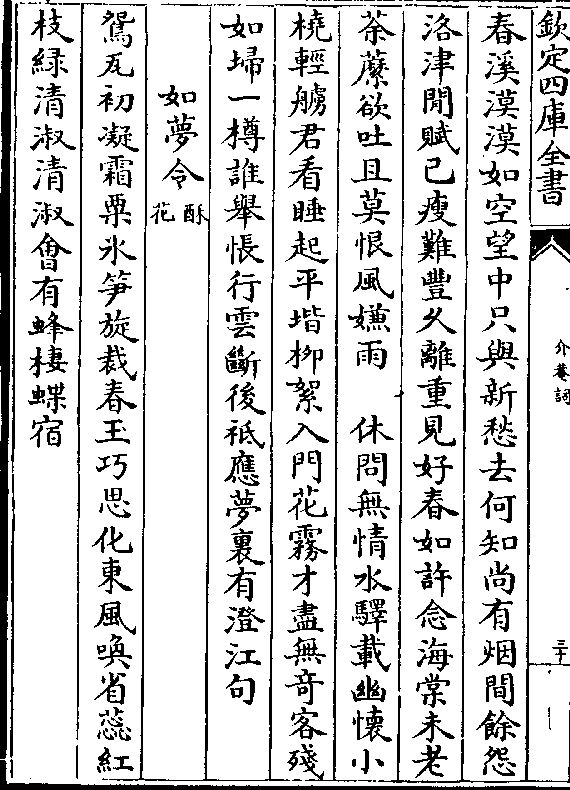 欽定四庫全書
介菴詞
三十
春溪漠漠如空望中只與新愁去何知尚有烟間餘怨
洛津閒賦已瘦難豐久離重見好春如許念海棠未老
荼蘼欲吐且莫恨風嫌雨　休問無情水驛載幽懷小
橈輕艣君看睡起平堦栁絮入門花霧才盡無竒客殘
如埽一樽誰舉悵行雲斷後祗應夢裏有澄江句
如夢令酥花
鴛瓦初凝霜粟氷笋旋裁春王巧思化東風喚省蕊紅
枝緑清淑清淑會有蜂棲蝶宿